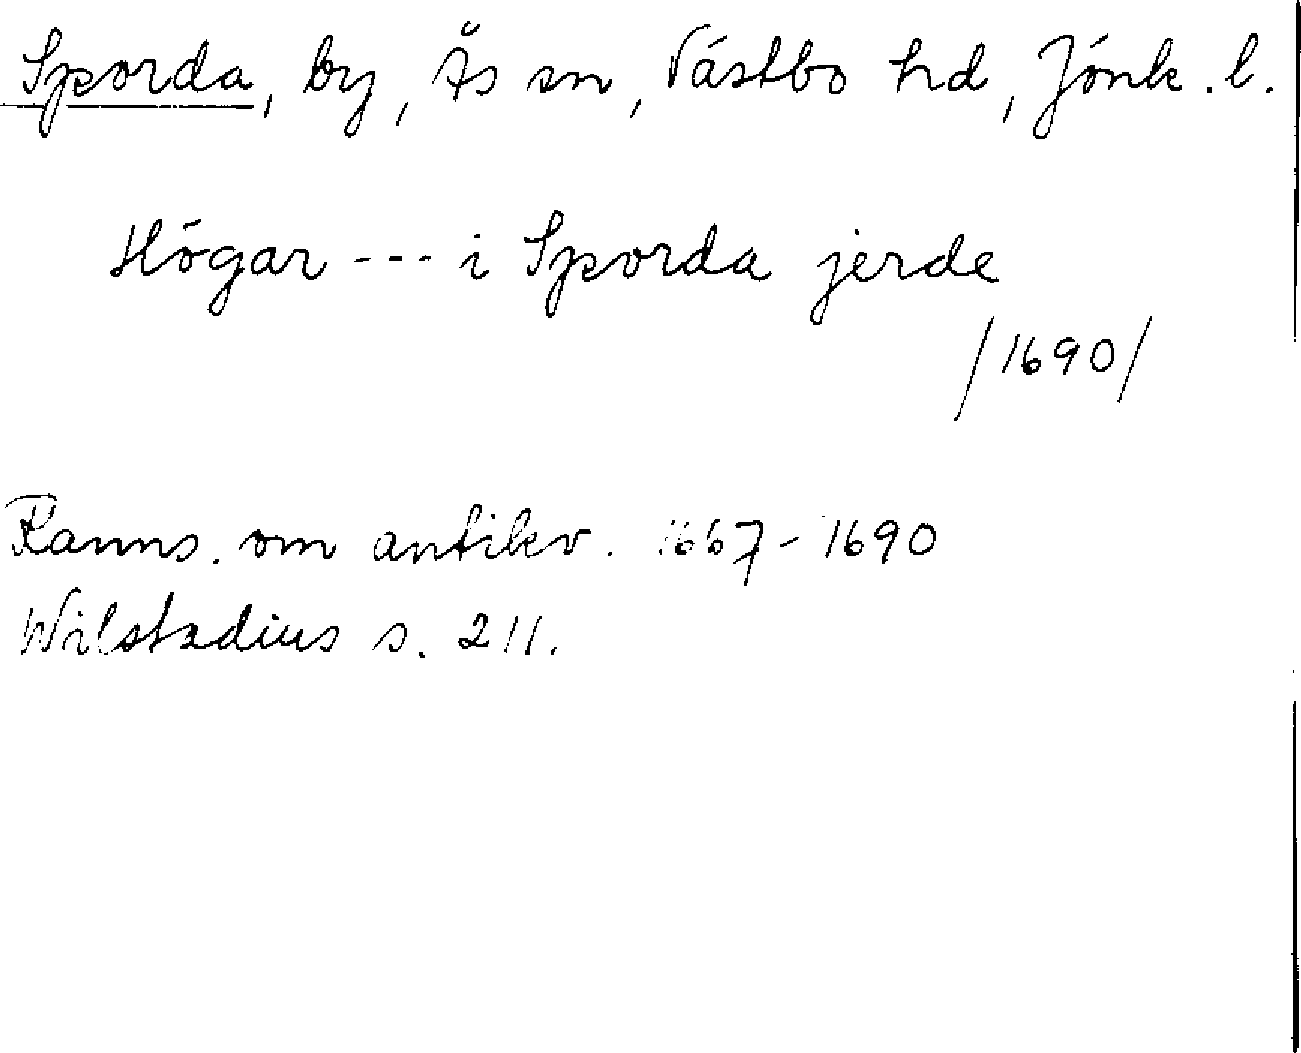 Sporda, by, Ås sn, Västbo hd, Jönk. l.
Högar --- i Sporda jerde
/1690/
Ranns. om antikv. 1667-1690
Wilstadius s. 211.